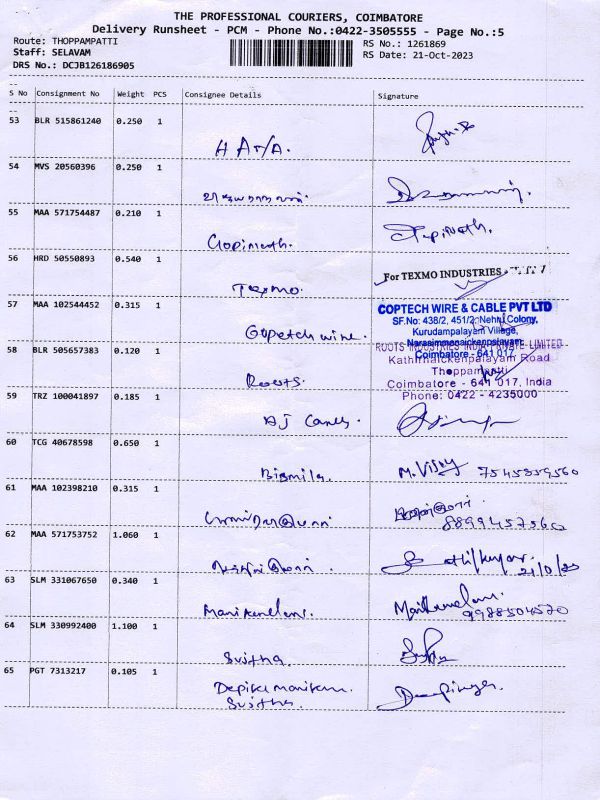 THE PROFESSIONAL COURIERS, COIMBATORE
Delivery Runsheet - PCM - Phone No.:0422-3505555 - Page No.:5
Route: THOPPAMPATTI
RS No.: 1261869
Staff: SELAVAM
RS Date: 21-Oct-2023
DRS No.: DCJB126186905
S No Consignment No Weight PCS Consignee Details Signature
53 BLR 515861240 0.250 1
54 MVS 20560396 0.250 1
55 MAA 571754487 0.210 1 Gopinath. Gopinath.
56 HRD 50550893 0.540 1 Texmo. For TEXMO INDUSTRIES
57 MAA 102544452 0.315 1 Copetch wire.
COPTECH WIRE & CABLE PVT LTD
SF.No: 438/2, 451/2, Nehru Colony,
Kurudampalayam Village,
Narasimmanaickenpalayam
Coimbatore - 641 017.
58 BLR 505657383 0.120 1 Roots.
ROOTS INDUSTRIES INDIA PRIVATE LIMITED
Kathirnaickenpalayam Road
Thoppampatti
Coimbatore - 641 017. India
Phone: 0422 - 4235000
59 TRZ 100041897 0.185 1 AJ
60 TCG 40678598 0.650 1 Bismila. M. Vijay 7545859560
61 MAA 102398210 0.315 1
62 MAA 571753752 1.060 1
63 SLM 331067650 0.340 1 Manikandan. 9988504570
64 SLM 330992400 1.100 1 Sujitha.
65 PGT 7313217 0.105 1 Depika manikam.
Sujitha.